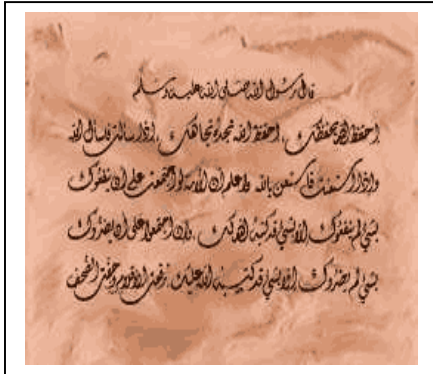 قال رسول الله صلى الله عليه وسلم
احفظ الله يحفظك ، احفظ الله تجده تجاهك ، إذا سألت فاسأل الله
وإذا استعنت فاستعن بالله واعلم أن الأمة لو اجتمعت على أن ينفعوك
بشيء لم ينفعوك إلا بشيء قد كتبه الله لك ، وإن اجتمعوا على أن يضروك
بشيء لم يضروك إلا بشيء قد كتبه الله عليك ، رفعت الأقلام وجفت الصحف